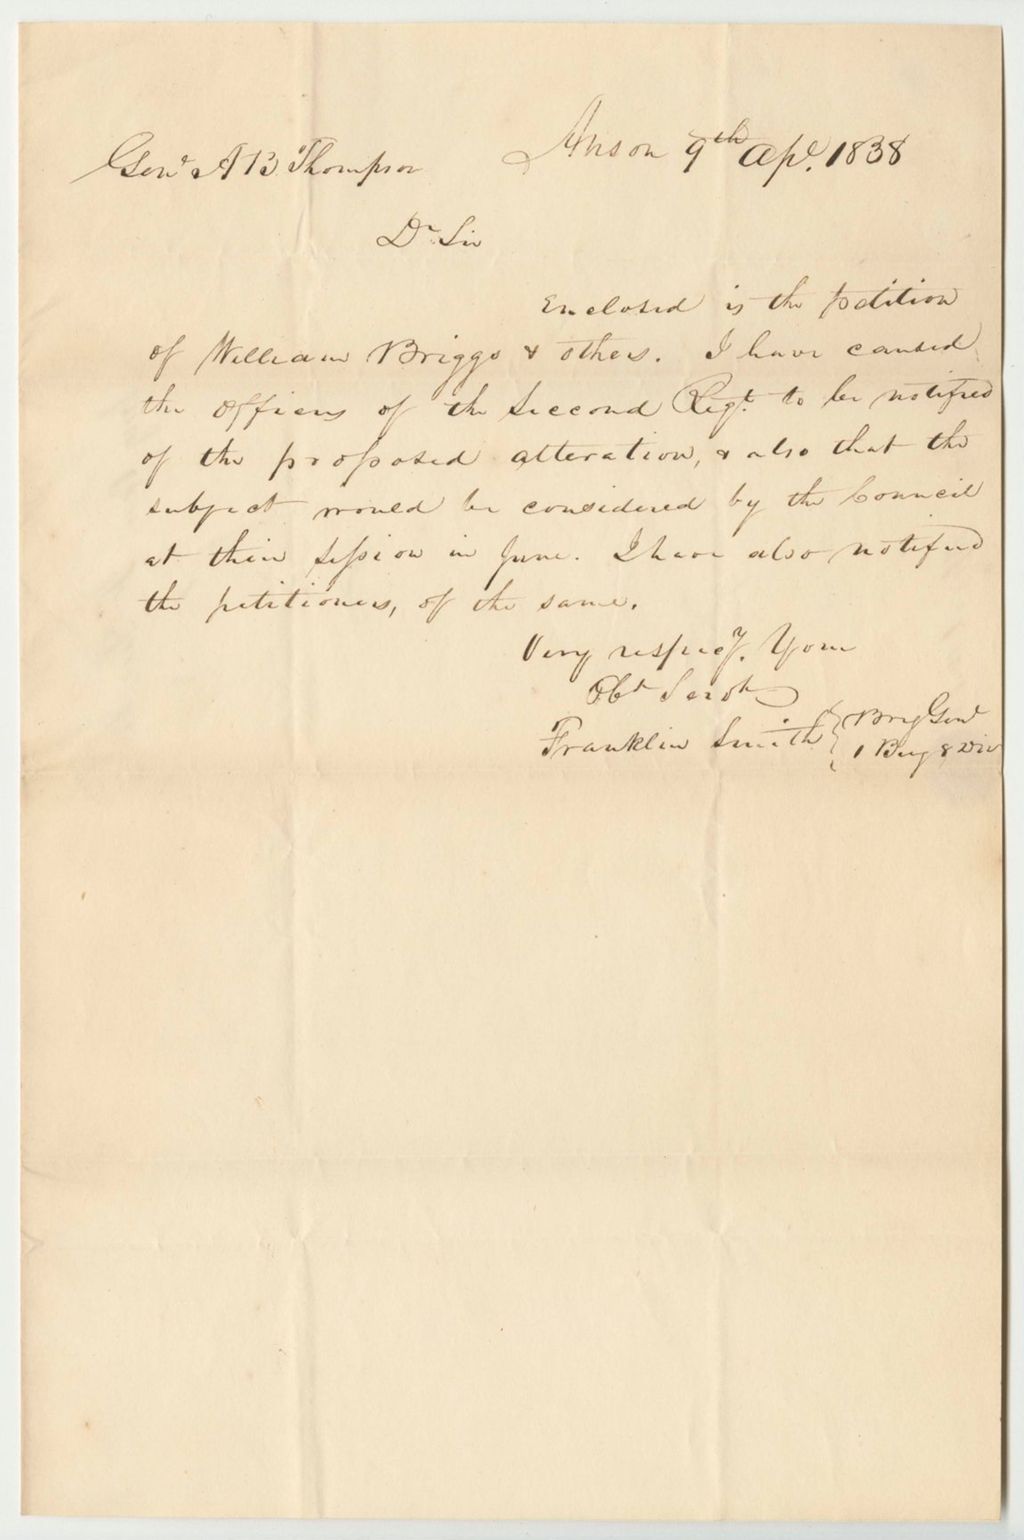 Anson 9th Apl. 1838
Genl A B Thompson
Dr. Sir
Enclosed is the petition
of William Briggs & others. I have caused
the Officers of the Second Regt. to be notified
of the proposed alteration, & also that the
subject would be considered by the Council
at their Session in June. I have also notified
the petitioners, of the same.
Very respecy. Your
Obt Servt
Franklin Smith } Brig Genl
1 Brig 8 Div